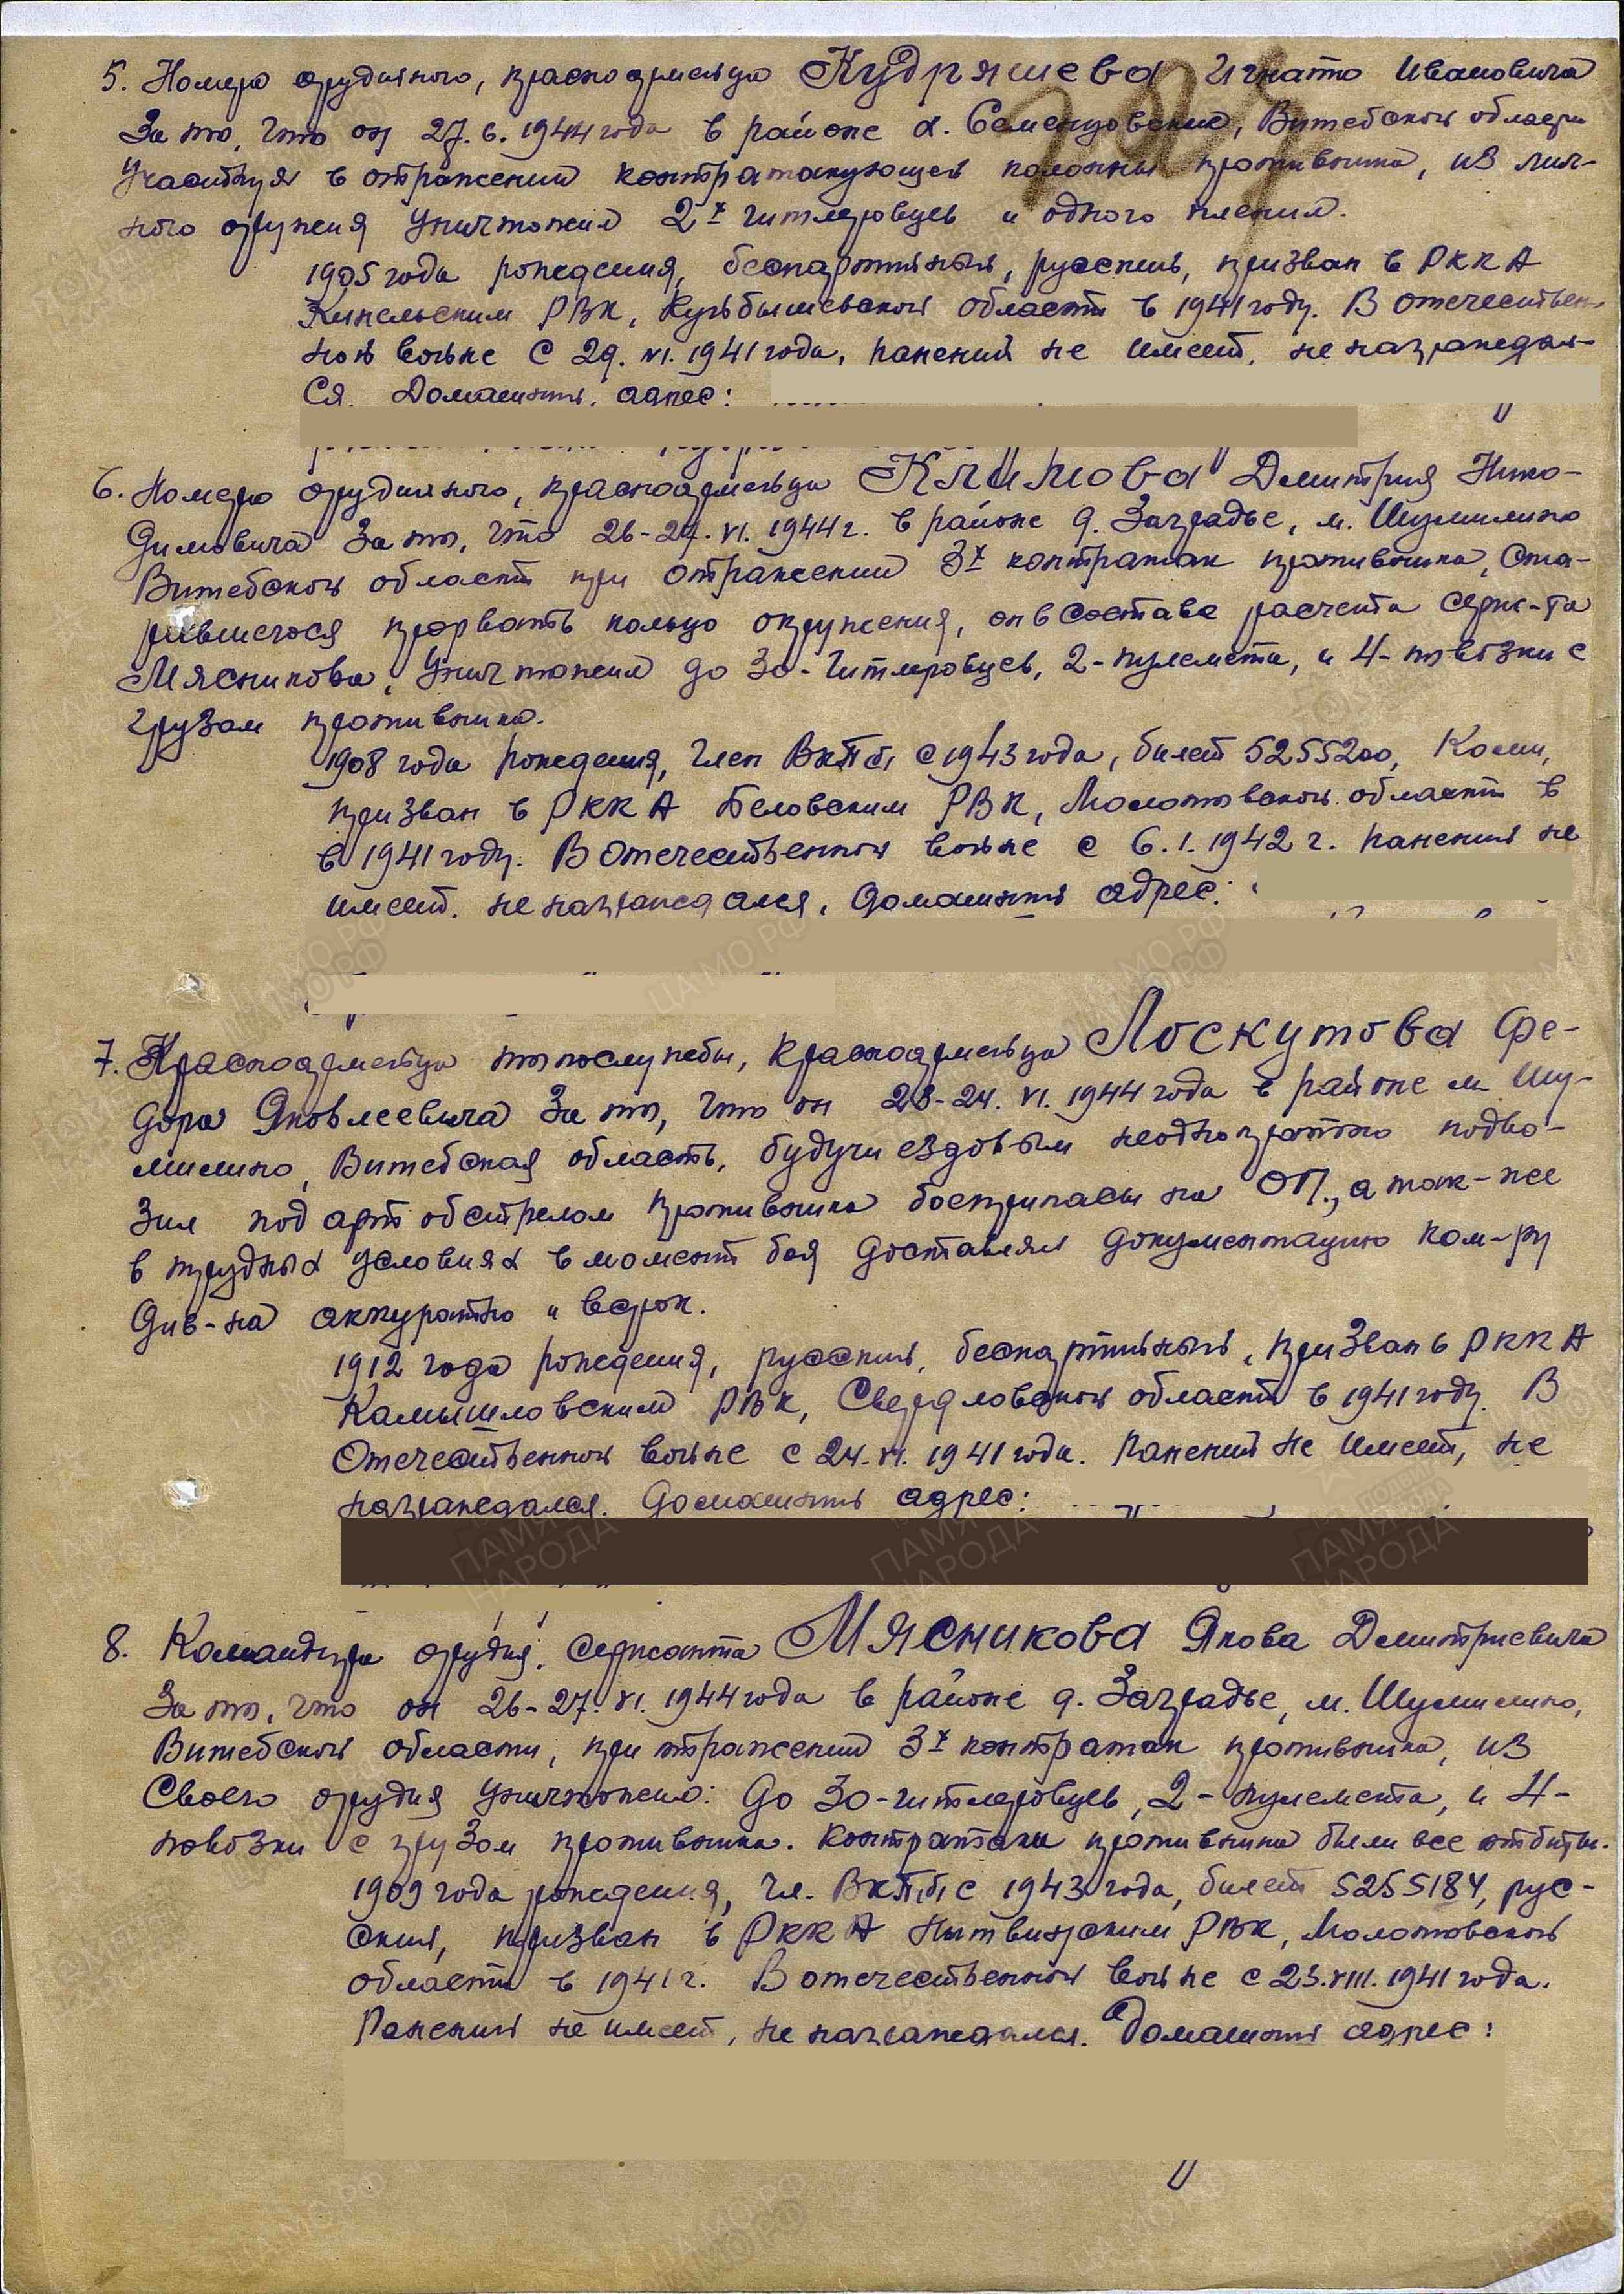 5. Номера орудийного, красноармейца Кудряшева Игната Ивановича
За то, что он 27.6.1944 года в районе д. Семенцовские, Витебской области
Участвуя в отражении контратакующей колонны противника, из лич-
ного оружия Уничтожил 2х гитлеровцев и одного пленил.
1905 года рождения, беспартийный, русский, призван в РККА
Кинельским РВК, Куйбышевской области в 1941 году. В отечествен-
ной войне с 29.VI.1941 года, ранений не имеет, не награждал-
ся. Домашний адрес:
6. Номера орудийного, красноармейца Климова Дмитрия Нико-
димовича За то, что 26-27.VI.1944 г. в районе д. Заградье, м. Шумилино
Витебской области при отражении 3х контратак противника, ста-
равшегося прорвать кольцо окружения, он в составе расчета серж-та
Мясникова, Уничтожил до 30-гитлеровцев, 2-пулемета, и 4-повозки с
грузом противника.
1908 года рождения, член ВКП(б) с 1943 года, билет 5255200, Коми,
призван в РККА Беловским РВК, Молотовской области в
в 1941 году. В Отечественной войне с 6.1.1942 г. ранений не
имеет. не награждался, домашний адрес:
7. Красноармейца топослужбы, красноармейца Лоскутова Фе-
дора Яковлеевича За то, что он 23-24.VI.1944 года в районе м Шу-
милино, Витебская область, будучи ездовым неоднократно подво-
зил под арт обстрелом противника боеприпасы на ОП., а так-же
в трудных условиях в момент боя доставлял документацию ком-ру
Див-на аккуратно и в срок.
1912 года рождения, русский, беспартийный, призван в РККА
Камышловским РВК, Свердловской области в 1941 году. В
Отечественной войне с 24.VI.1941 года. Ранений не имеет, не
награждался. Домашний адрес:
8. Командира орудия, сержанта Мясникова Якова Дмитриевича
За то, что он 26-27.VI.1944 года в районе д. Заградье, м. Шумилино,
Витебской области, при отражении 3х контратак противника, из
Своего орудия Уничтожил: до 30-гитлеровцев, 2-пулемета, и 4-
повозки с грузом противника. Контратаки противника были все отбиты.
1909 года рождения, чл. ВКП(б) с 1943 года, билет 5255184, рус-
ский, призван в РККА Нытвинским РВК, Молотовской
области в 1941 г. В отечественной войне с 23.VIII.1941 года.
Ранений не имеет, не награждался. Домашний адрес: